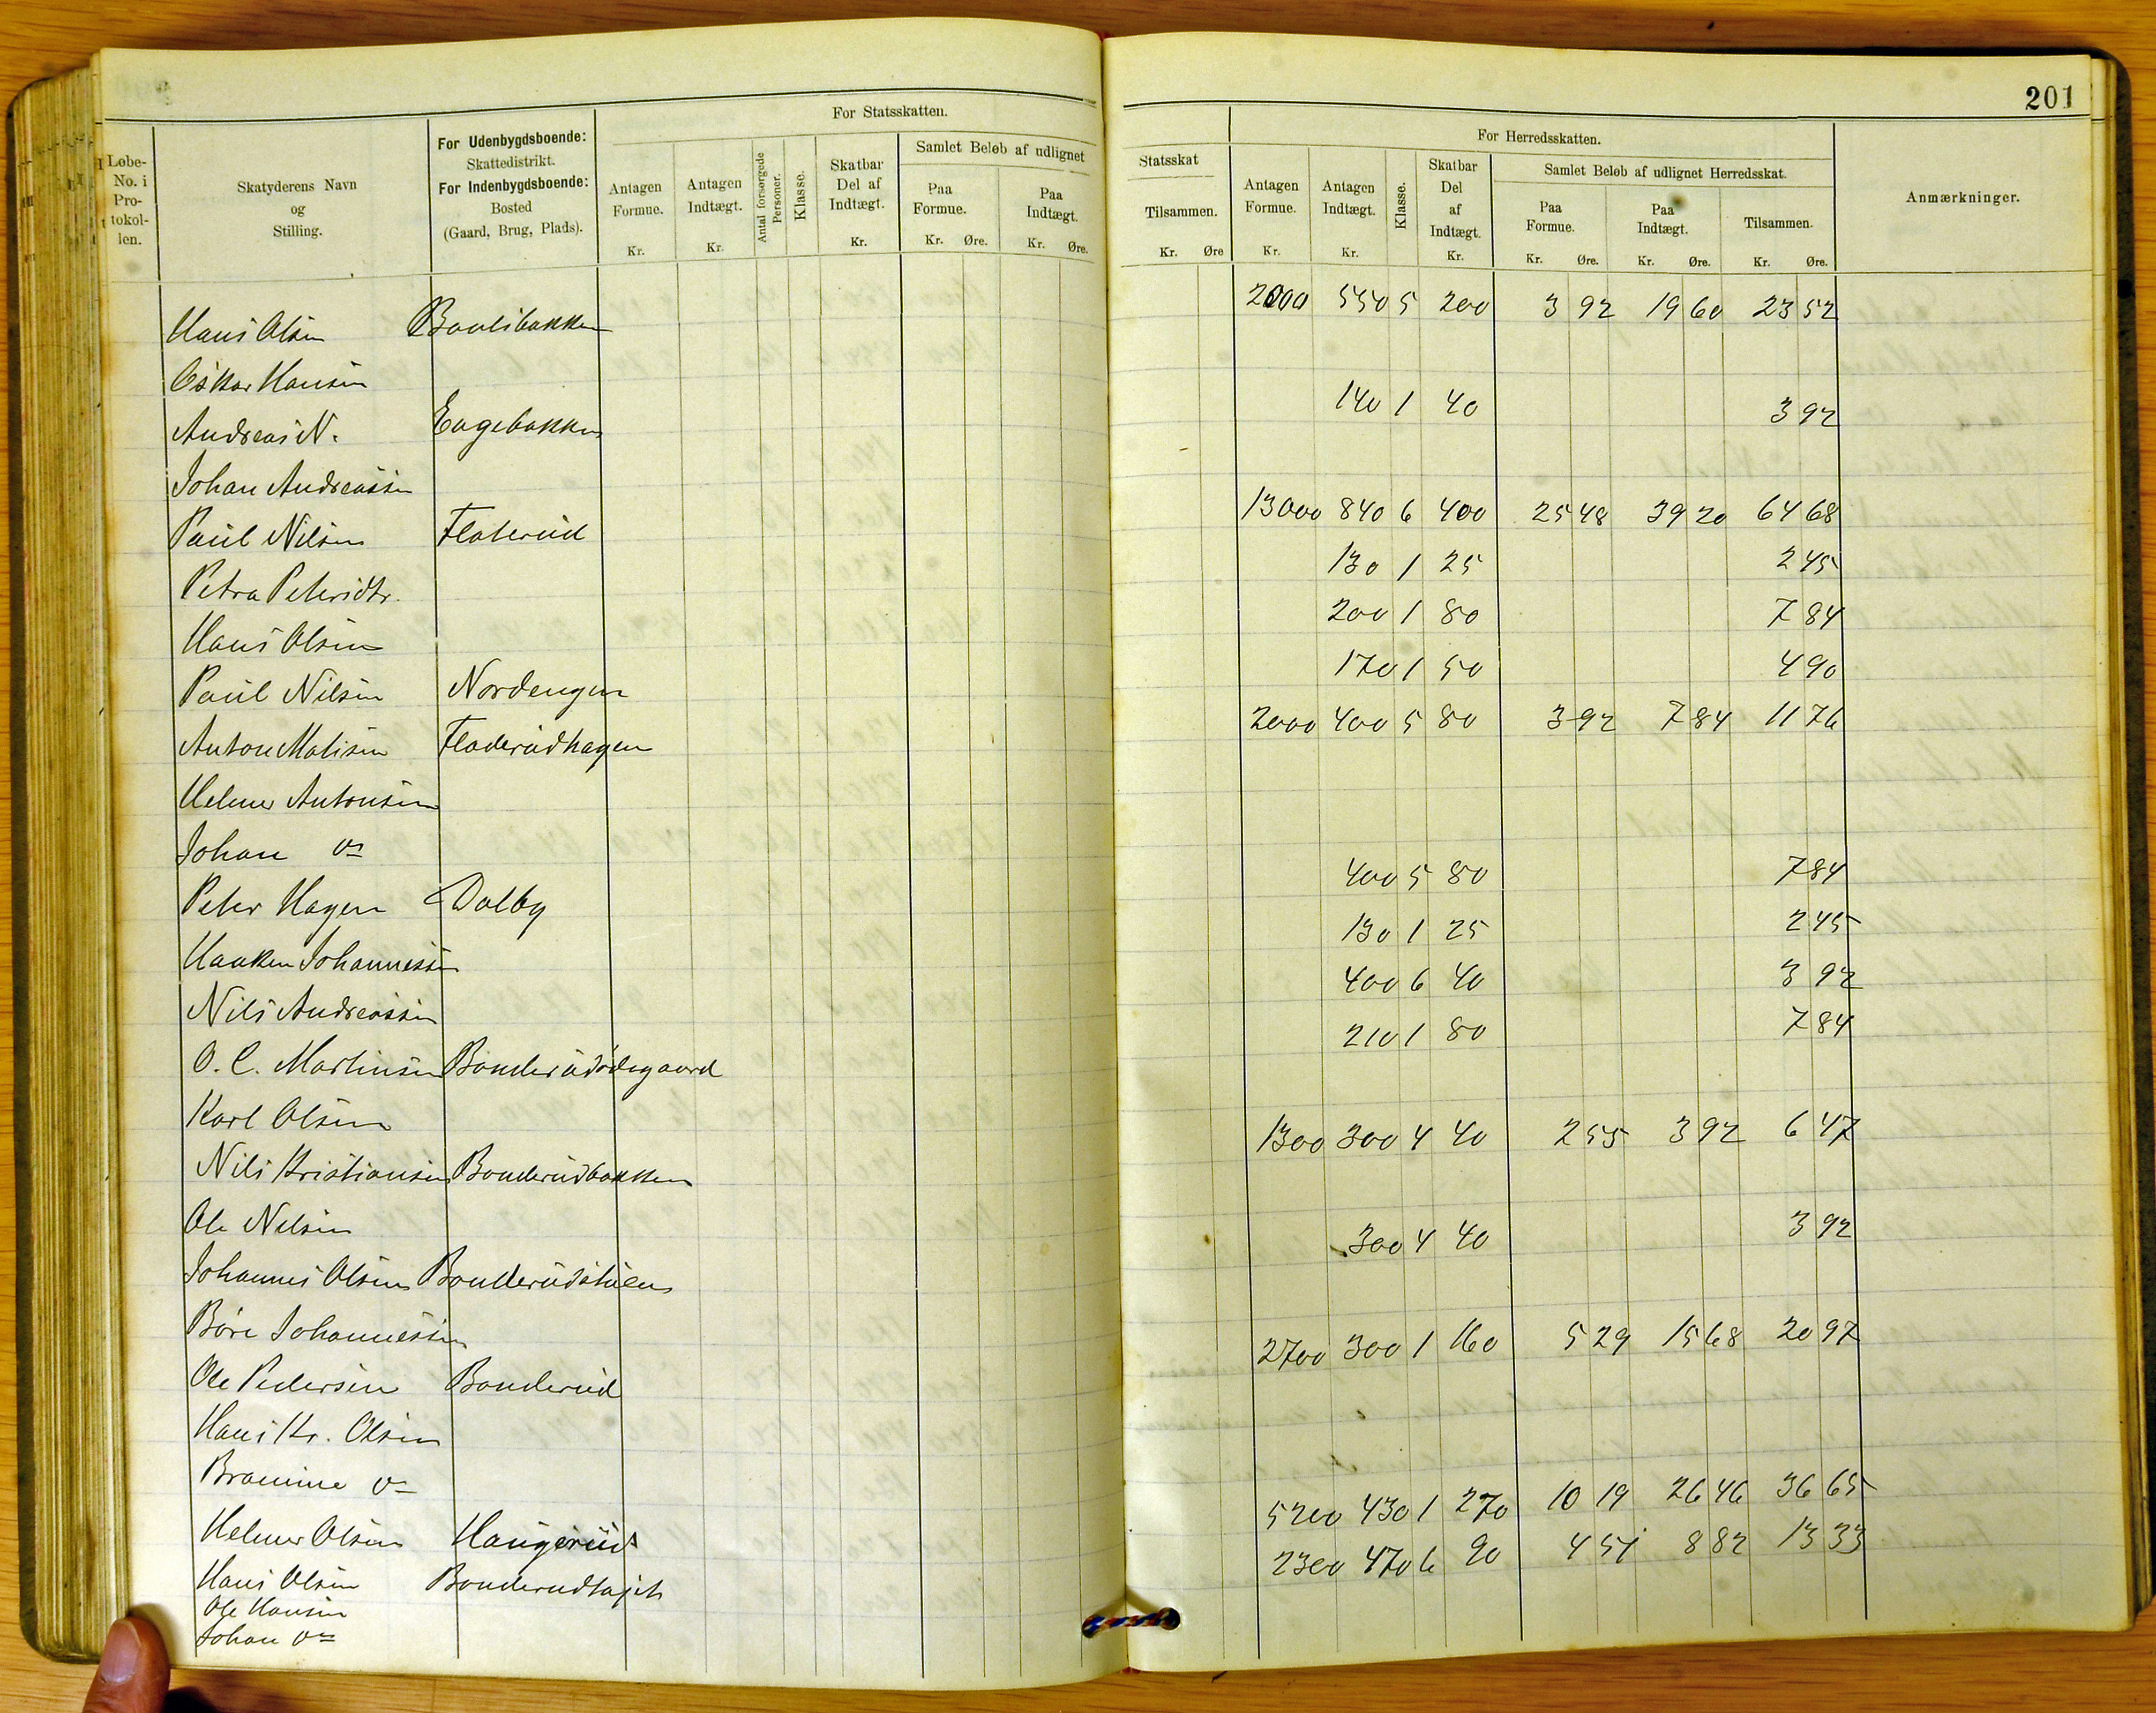 201
For Statsskatten.
Løbe-No. i Pro-tokol-len.
Skatyderens Navn og Stilling.
For Udenbygdsboende: Skattedistrikt. For Indenbygdsboende: Bosted (Gaard, Brug, Plads).
Antagen Formue. Kr.
Antagen Indtægt. Kr.
Antal forsørgede Personer.
Klasse.
Skatbar Del af Indtægt. Kr.
Samlet Beløb af udlignet
Paa Formue. Kr. Øre.
Paa Indtægt. Kr. Øre.
Statsskat
Tilsammen. Kr. Øre
For Herredsskatten.
Antagen Formue. Kr.
Antagen Indtægt. Kr.
Klasse.
Skatbar Del af Indtægt. Kr.
Samlet Beløb af udlignet Herredsskat.
Paa Formue. Kr. Øre.
Paa Indtægt. Kr. Øre.
Tilsammen. Kr. Øre.
Anmærkninger.
Hans Olsen 2000 550 5 200 3 92 19 60 23 52
Oskar Hansen
Andreas N. Engebakken 140 1 40 3 92
Johan Andreassen
Paul Nilsen Flaterud 13000 840 6 400 25 48 39 20 64 68
Petra Petersdtr. 130 1 25 2 45
Hans Olsen 200 1 80 7 84
Paul Nilsen Nordengen 170 1 50 4 90
Anton Matisen Fladerudhagen 2000 400 5 80 3 92 7 84 11 76
Helmer Antonsen
Johan do
Peter Hagen Dalby 400 5 80 7 84
Haaken Johannessen 130 1 25 2 45
Nils Andreassen 400 6 40 3 92
O. C. Martinsen Bonderudødegaard 210 1 80 7 84
Karl Olsen
Nils Kristiansen Bonderudbakken 1300 300 4 40 2 55 3 92 6 47
Ole Nilsen
Johannes Olsen Bonderudstuen 300 4 40 3 92
Børe Johannessen
Ole Pedersen Bonderud 2700 300 1 160 5 29 15 68 20 97
Hans Kr. Olsen
do
Helmer Olsen Haugerud 5200 430 1 270 10 19 26 46 36 65
Hans Olsen 2300 470 6 90 4 51 8 82 13 33
Ole Hansen
Johan do